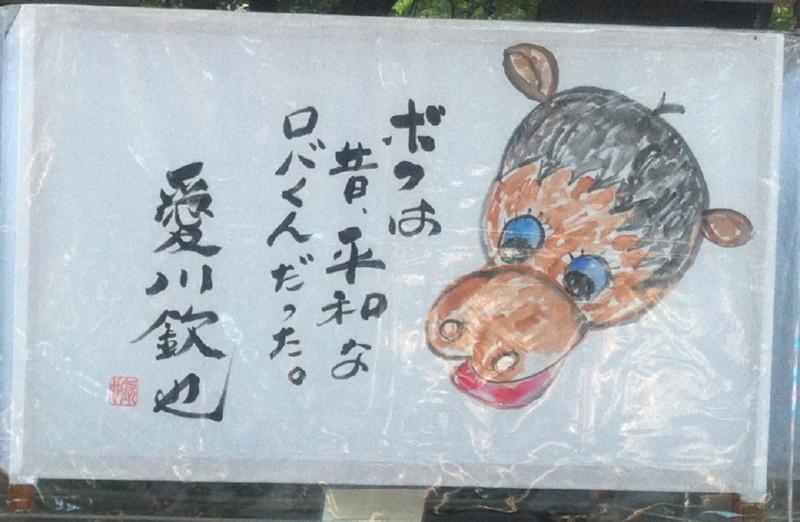 ボクは
昔、平和な
ロバくんだった。
愛川欽也